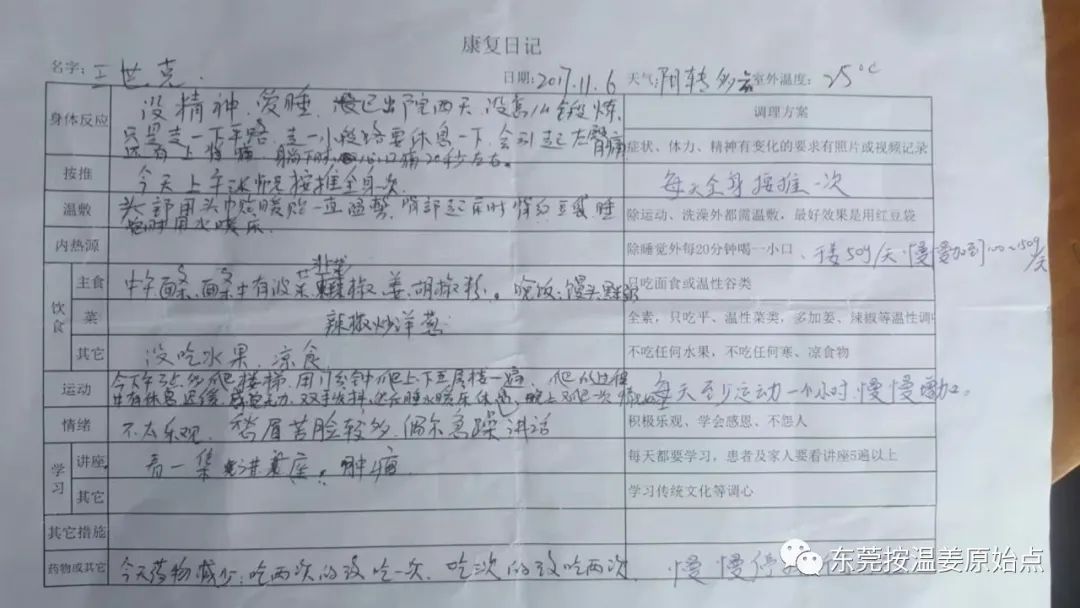 康复日记
名字: 王世克. 日期: 2017.11.6 天气: 阴转多云 室外温度: 25°C
身体反应 没精神、爱睡. 已出院两天 没怎么锻炼. 调理方案
只是走一下平路 走一小段路要休息一下、会引起左臀痛 症状、体力、精神有变化的要求有照片或视频记录
20秒左右。
按推 今天上午 按推全身一次. 每天全身按推一次
温敷 头部用头巾贴暖贴一直温敷. 背部 时 红豆袋 睡 除运动、洗澡外都需温敷，最好效果是用红豆袋
时用水暖床.
内热源 除睡觉外每20分钟喝一小口、干姜50g/天 慢慢加到100~150g/天
饮食 主食 中午面条、面条中有菠菜 韭菜 辣椒、姜、胡椒粉。晚饭: 馒头 只吃面食或温性谷类
菜 辣椒炒洋葱. 全素，只吃平、温性菜类，多加姜、辣椒等温性调
其它 没吃水果、凉食 不吃任何水果，不吃任何寒、凉食物
运动 今天下午 爬楼梯. 用11分钟爬上下五层楼一遍. 爬的过程 每天至少运动一个小时. 慢慢增加.
中有休息 双手发抖 晚上又爬一次
情绪 不太乐观. 愁眉苦脸较多. 偶尔急躁讲话 积极乐观、学会感恩、不怨人
学习 讲座 看一集 讲座. 肿瘤 每天都要学习，患者及家人要看讲座5遍以上
其它 学习传统文化等调心
其它措施
药物或其它 今天药物减少: 吃两次的改吃一次. 吃 次的改吃两次. 慢慢停
东莞按温姜原始点